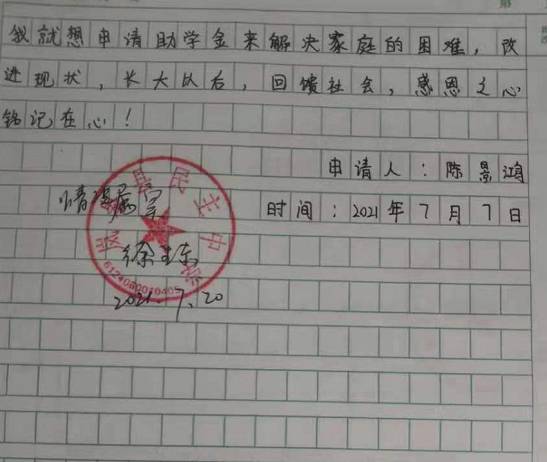 我就想申请助学金来解决家庭的困难，改
进现状，长大以后，回馈社会，感恩之心
铭记在心！
申请人：陈景鸿
情况属实
时间：2021年7月7日
民主中
2021.7.20